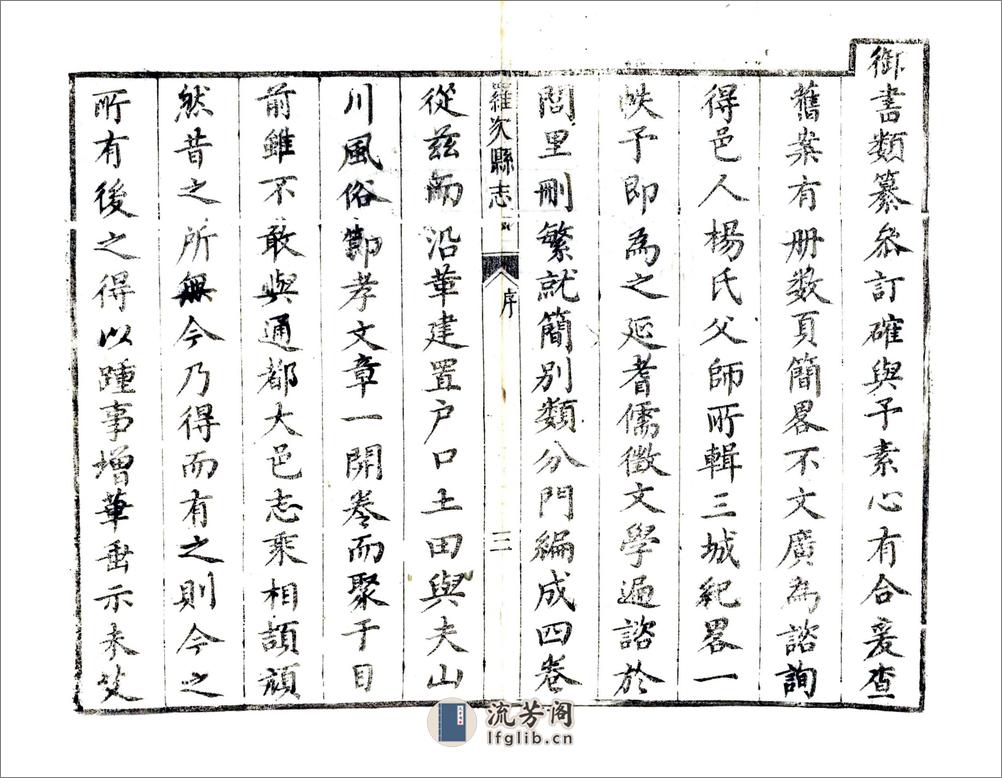 御書類纂叅訂確與予素心有合爰查
舊案有册数頁簡畧不文廣為諮詢
得邑人楊氏父師所輯三城紀畧一
帙予即為之延耆儒徵文學遍諮於
閭里刪繁就簡别類分門編成四卷
羅次縣志
序
三
從兹而沿革建置户口土田與夫山
川風俗節孝文章一開卷而聚于目
前雖不敢與通都大邑志乘相頡頏
然昔之所無今乃得而有之則今之
所有後之得以踵事增華垂示未艾
流芳阁
lfglib.cn